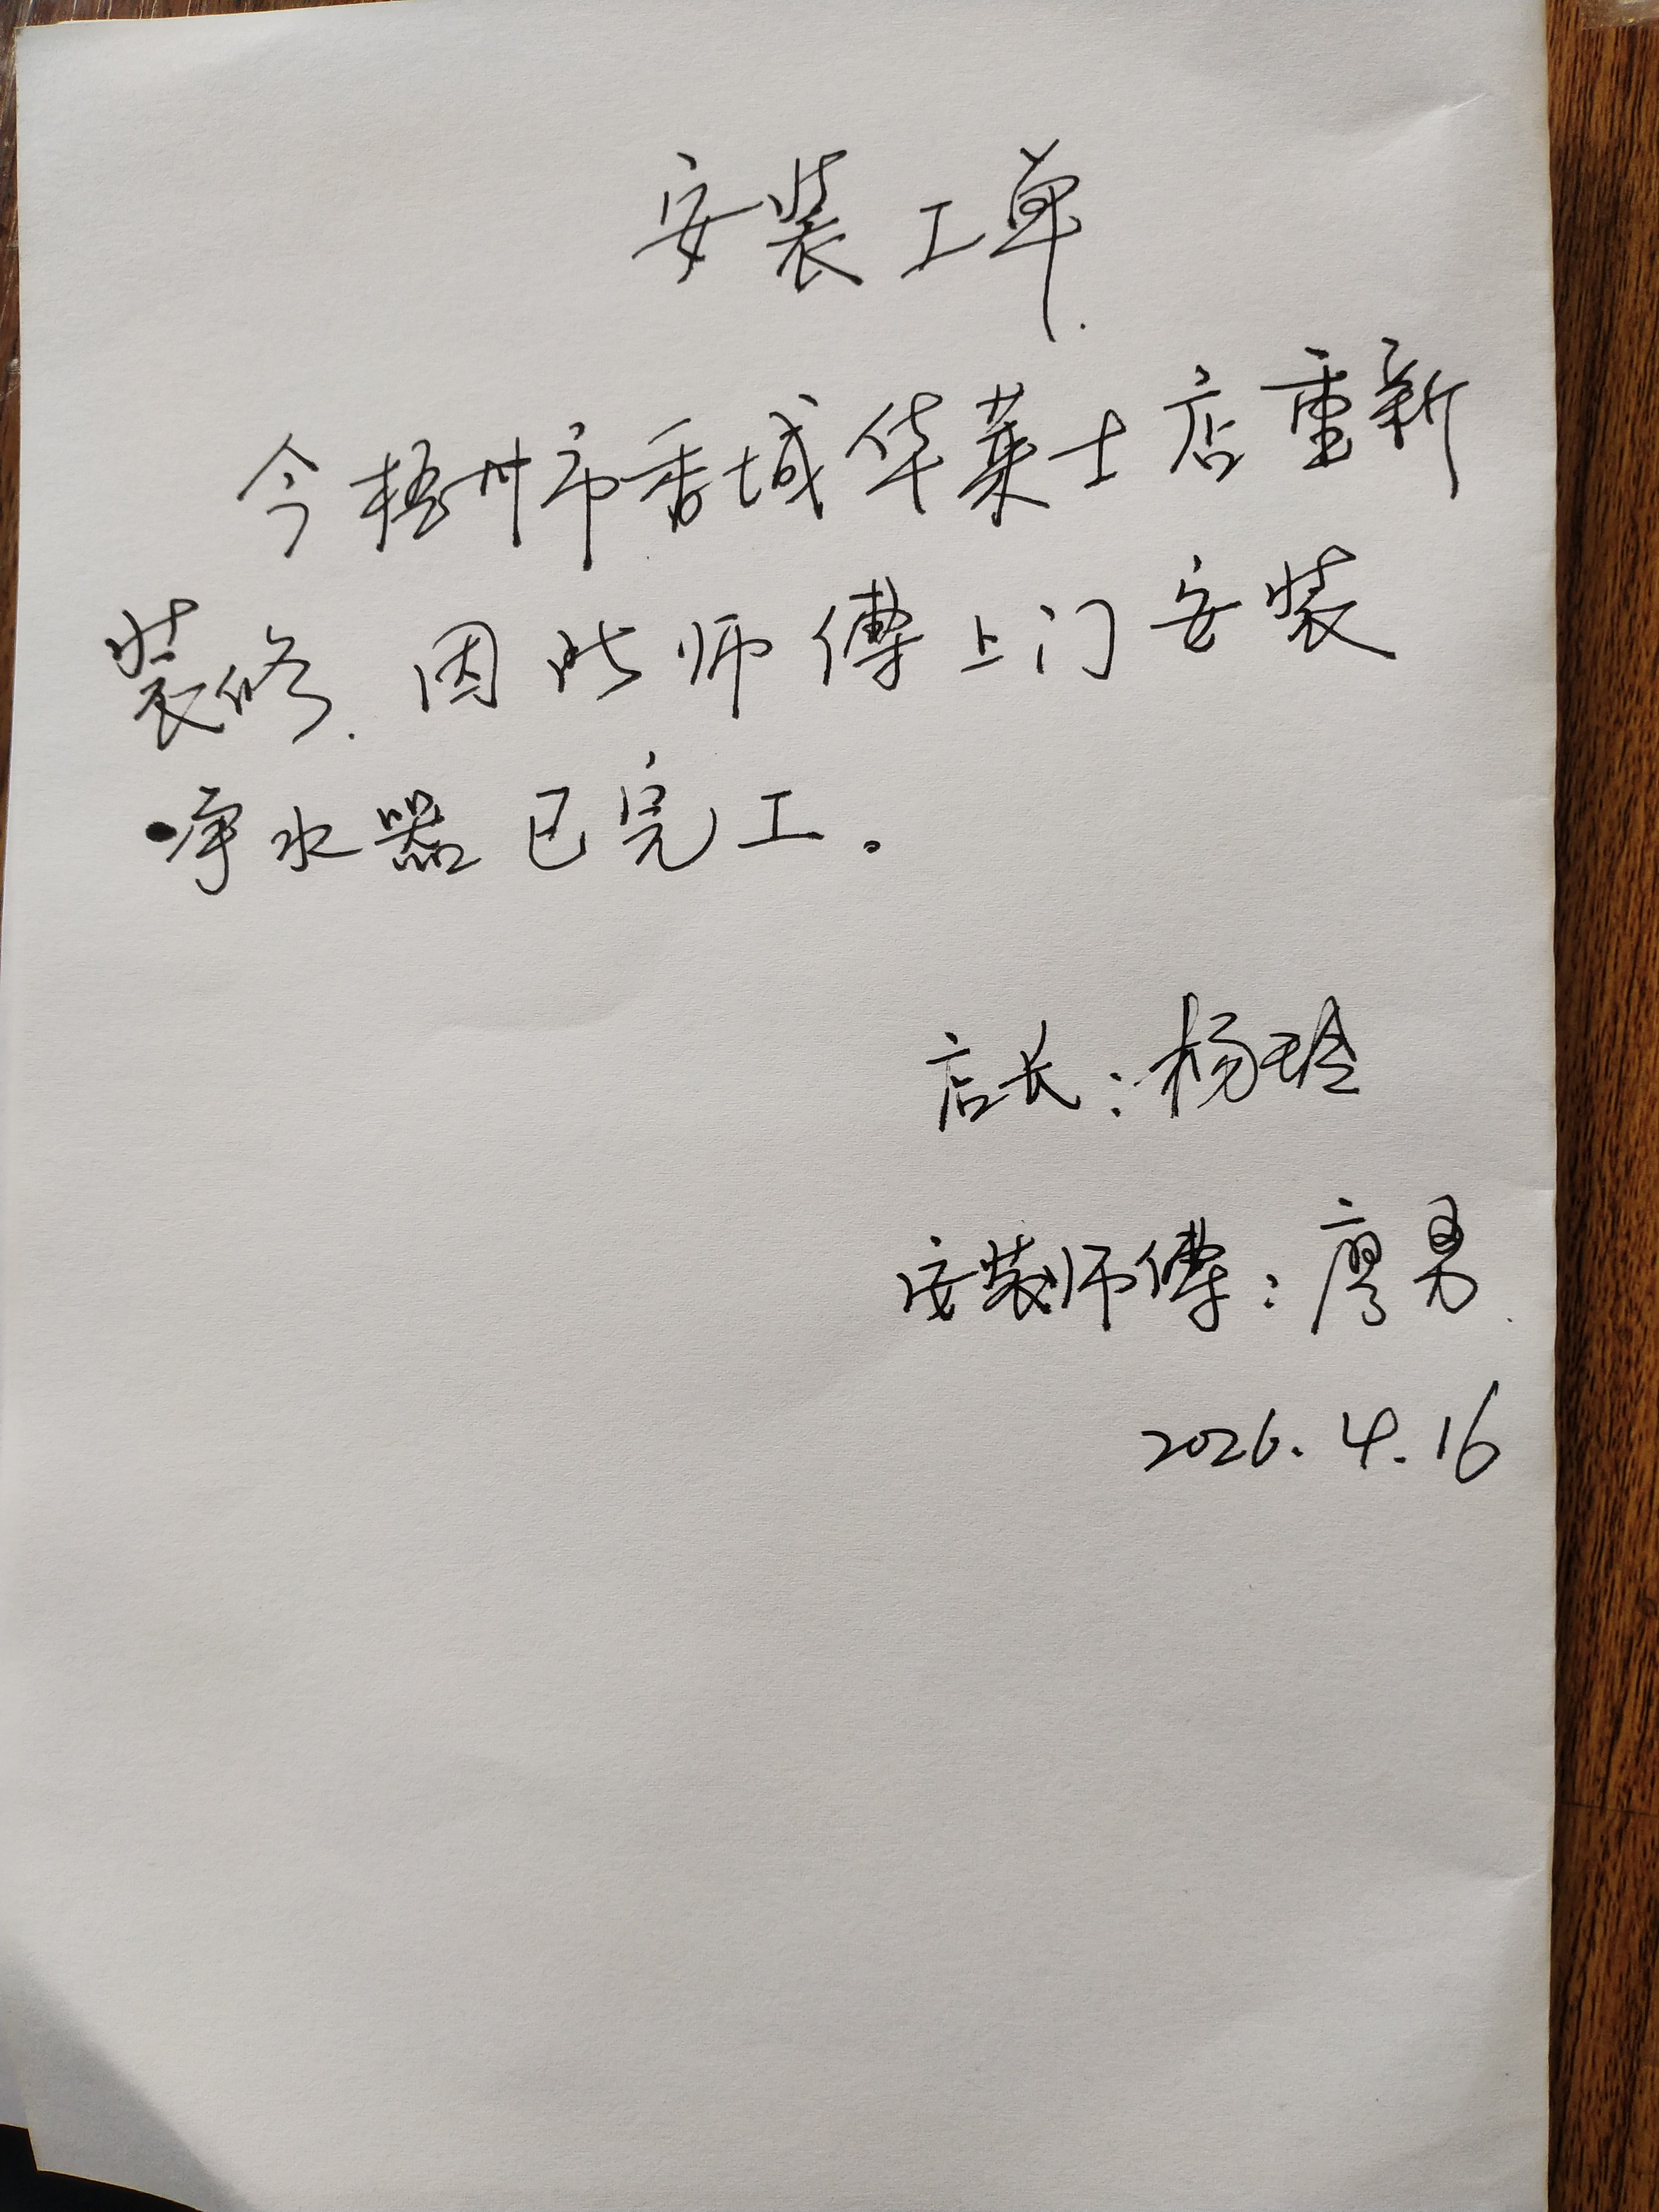 安装工单
今梧州市香城华莱士店重新
装修.因此师傅上门安装
净水器已完工。
店长:杨玲
安装师傅:廖勇
2026.4.16